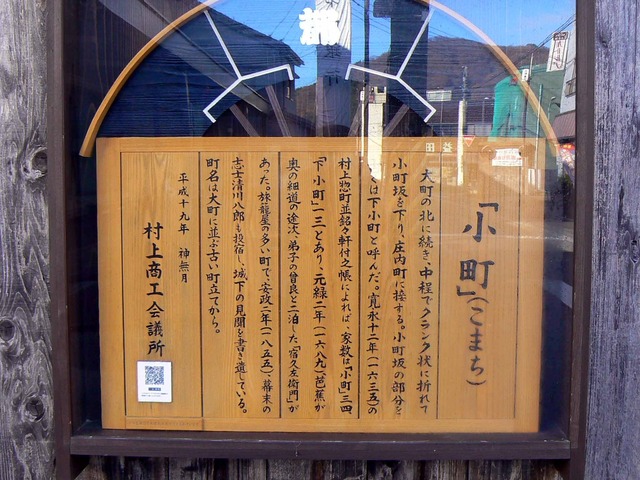 「小町」(こまち)
大町の北に続き、中程でクランク状に折れて
小町坂を下り、庄内町に接する。小町坂の部分を
くは下小町と呼んだ。寛永十二年(一六三五)の
村上惣町並銘々軒付之帳によれば、家数は「小町」三四
「下小町」一三とあり、元緑二年(一六八九)芭蕉が
奥の細道の途次、弟子の曾良と二泊した「宿久左衛門」が
あった。旅籠屋の多い町で、安政二年(一八五五)、幕末の
志士清川八郎も投宿し、城下の見聞を書き遺している。
町名は大町に並ぶ古い町立てから。
平成十九年 神無月
村上商工会議所